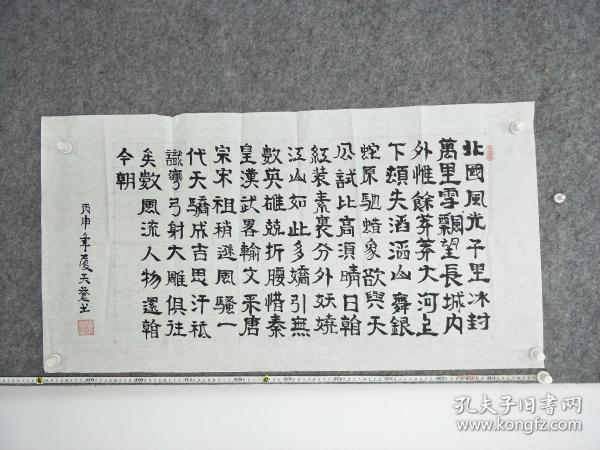 北國風光千里冰封
萬里雪飄望長城内
外惟餘莽莽大河上
下頓失滔滔山舞銀
蛇原馳蠟象欲與天
公試比高須晴日看
紅装素裹分外妖嬈
江山如此多嬌引無
數英雄競折腰惜秦
皇漢武畧輸文采唐
宗宋祖稍遜風騷一
代天驕成吉思汗祗
識彎弓射大雕俱往
矣數風流人物還看
今朝
丙申年夏天意书
孔夫子旧书网
www.kongfz.com